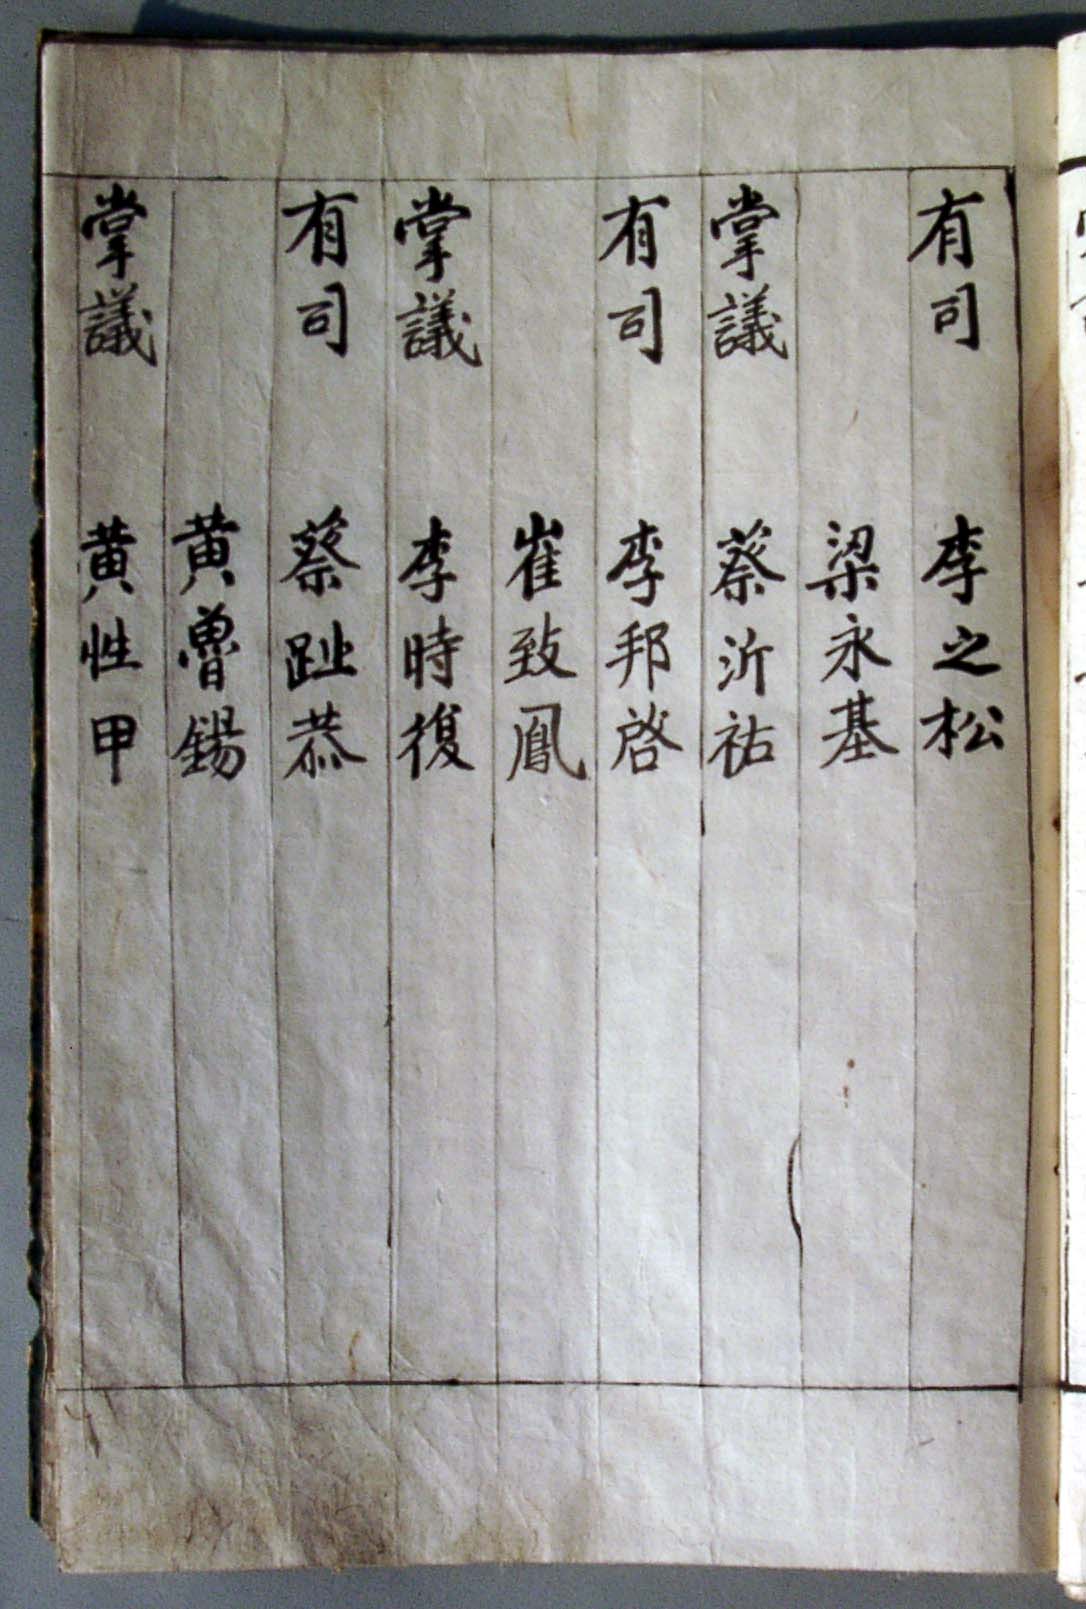 有司 李之松
梁永基
掌議 蔡沂祐
有司 李邦啓
崔致鳳
掌議 李時復
有司 蔡趾恭
黃魯錫
掌議 黃性甲